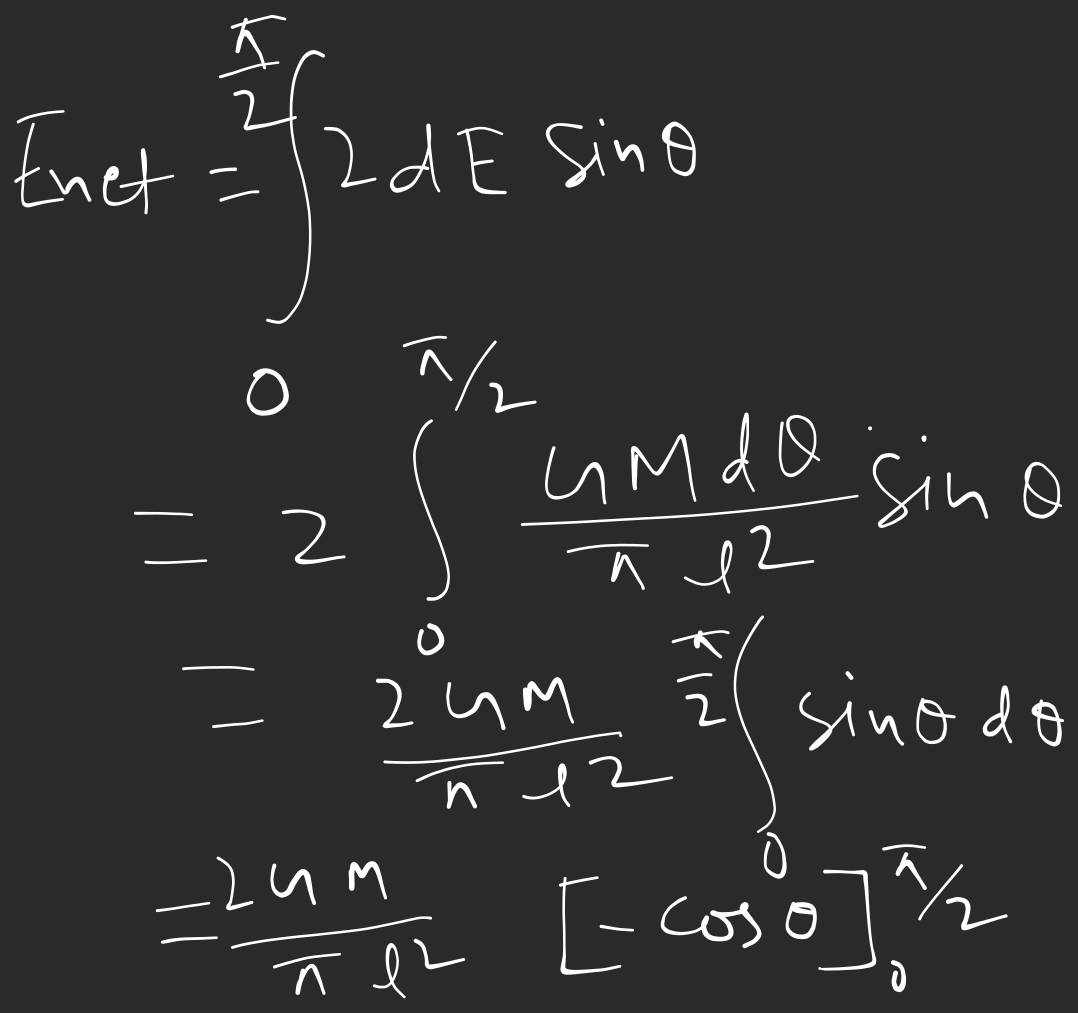 Enet = ∫₀^(π/2) 2dE sinθ
= 2 ∫₀^(π/2) (GMdθ / πl²) sinθ
= (2GM / πl²) ∫₀^(π/2) sinθdθ
= (2GM / πl²) [-cosθ]₀^(π/2)